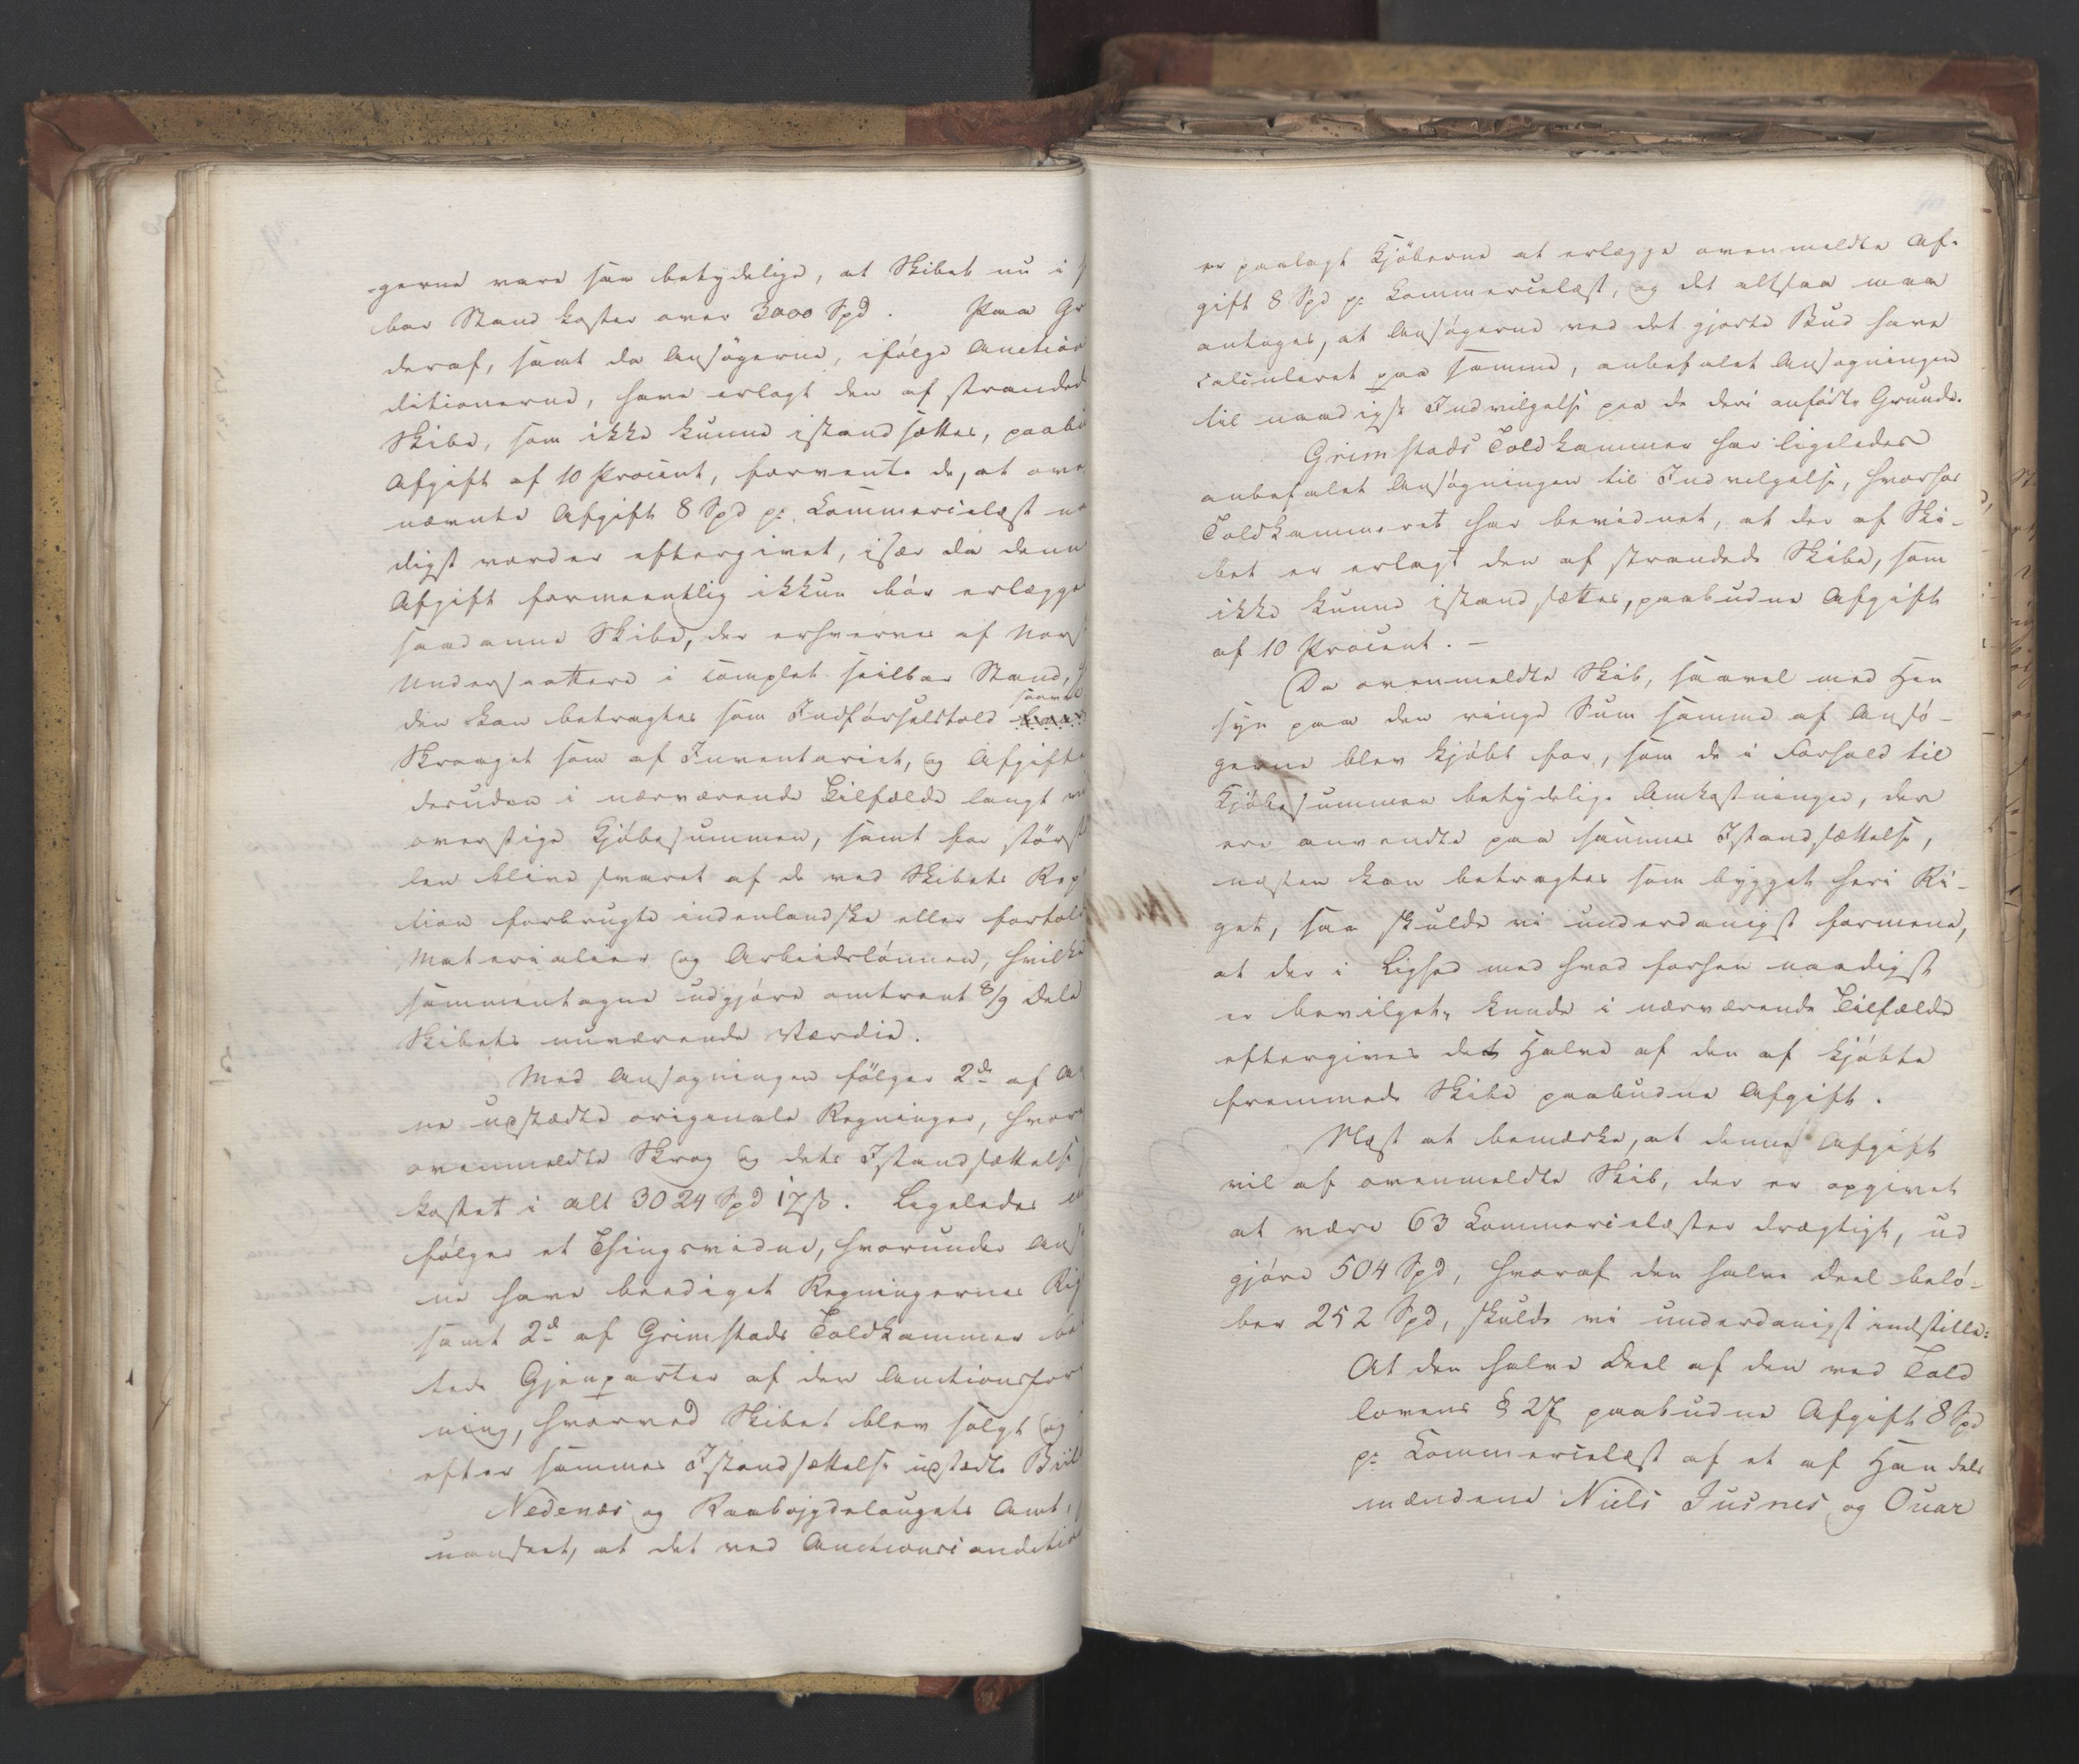 gerne vare saa betydelige, at Skibet nu i
bar Stand koster over 3000 Spd. Paa Gr
deraf, samt da Ansøgerne, ifølge Auction
ditionerne, have erlagt den af strandede
Skibe, som ikke kunne istandsættes, paabu
Afgift af 10 Procent, forvente de, at oven
nævnte Afgift 8 Spd pr. Commercelæst na
digst vorder eftergivet, især da denne
Afgift formeentlig ikkun bør erlægges
saadanne Skibe, der erhverves af Norske
Undersaatter i complet seilbar Stand,
den kan betragtes som Indførselstold saavel
Skroget som af Inventariet, og Afgiften
desuden i nærværende Tilfælde langt vil
overstige Kjøbesummen, samt for største
len blive svaret af de ved Skibets Rep
tion forbrugte indenlandske eller fortold
Materialier og Arbeidslønnen, hvilke
sammentagne udgjøre omtrent 8/9 Dele
Skibets nuværende Værdie.
Med Ansøgningen følger 2de af A
ne udstædte originale Regninger, hvor
ovenmeldte Skrog og dets Istandsættelse
kostet i alt 3024 Spd 17 ß. Ligeledes
følger et Thingsvidne, hvorunder Ansø
ne have beediget Regningernes Rig
samt 2de af Grimstads Toldkammer be
tede Gjenparter af den Auctionsfor
ning, hvorved Skibet blev solgt og
efter sammes Istandsættelse udstædte Biil
Nedenæs og Raabøjgdelaugets Amt,
uanseet, at det ved Auctionsconditio
er paalagt Kjøberne at erlægge ovenmeldte Af-
gift 8 Spd pr. Commercelæst, og det altsaa maa
antages, at Ansøgerne ved det gjorte Bud have
calculeret paa samme, anbefalet Ansøgningen
til naadigste Indvilgelse paa de deri anførte Grunde.
Grimstads Toldkammer har ligeledes
anbefalet Ansøgningen til Indvilgelse, hvorhos
Toldkammeret har bevidnet, at der af Ski-
bet er erlagt den af strandede Skibe, som
ikke kunne istandsættes, paabudne Afgift
af 10 Procent. -
Da ovenmeldte Skib, saavel med Hen
syn paa den ringe Sum samme af Ansø-
gerne blev kjøbt for, som de i Forhold til
Kjøbesummen betydelige Omkostninger, der
ere anvendte paa sammes Istandsættelse,
næsten kan betragtes som bygget heri Ri-
get, saa skulde vi underdanigst formene,
at der i Lighed med hvad forhen naadigst
er bevilget, kunde i nærværende Tilfælde
eftergives det Halve af den af kjøbte
fremmede Skibe paabudne Afgift.
Næst at bemærke, at denne Afgift
vil af ovenmeldte Skib, der er opgivet
at være 63 Commercelæster drægtigt, ud
gjøre 504 Spd, hvoraf den halve Deel belø-
ber 252 Spd, skulde vi underdanigst indstille:
At den halve Deel af den ved Told
lovens § 27 paabudne Afgift 8 Spd
pr. Commercelæst af et af Handels
mændene Niels Jusnes og Ouar